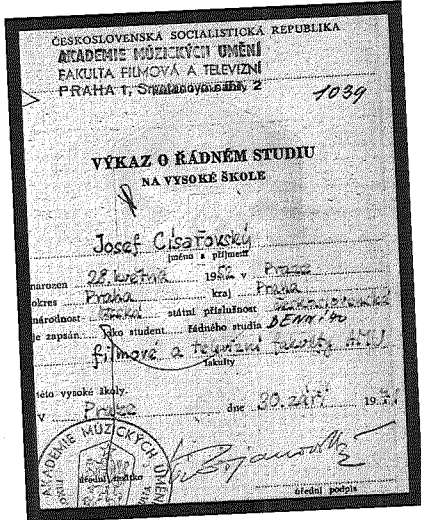 ČESKOSLOVENSKÁ SOCIALISTICKÁ REPUBLIKA
AKADEMIE MÚZICKÝCH UMĚNÍ
FAKULTA FILMOVÁ A TELEVIZNÍ
PRAHA 1, Smetanovo nábř. 2
1039
VÝKAZ O ŘÁDNÉM STUDIU
NA VYSOKÉ ŠKOLE
Josef Císařovský
jméno a příjmení
narozen 28. května 1952 v Praze
okres Praha kraj Praha
národnost česká státní příslušnost československá
je zapsán jako student řádného studia DENNÍHO
filmové a televizní fakulty AMU
fakulty
této vysoké školy.
V Praze dne 30. září 19
AKADEMIE MÚZICKÝCH UMĚNÍ
úřední razítko
úřední podpis